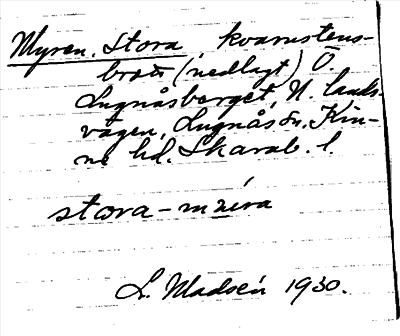 Myren, Stora, kvarnstens-
brott (nedlagt) Ö.
Lugnåsberget, N. lands-
vägen, Lugnås sn. Kin-
ne hd. Skarab. l.
stora-mȳra
L. Madsén 1930.